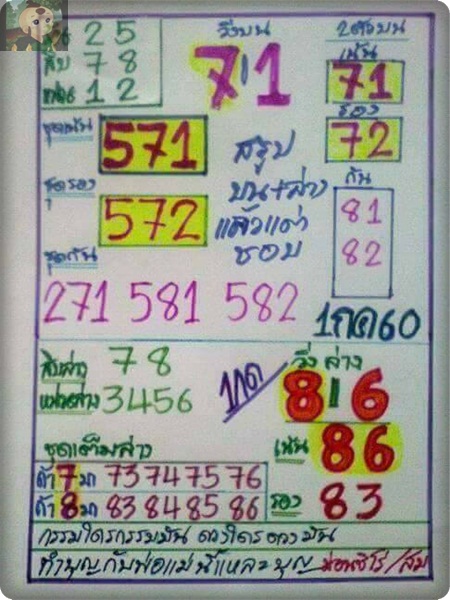 25
สิบ 78
หน่วย 12
วิ่งบน
7 1
2ตัวบน
เน้น
71
รอง
72
กัน
81
82
ชุดเน้น 571
ชุดรอง 572
สรุป
บน+ล่าง
แล้วแต่
ชอบ
ชุดกัน
271 581 582
1กค60
สิบล่าง 78
หน่วยล่าง 3456
วิ่งล่าง
8 6
เน้น 86
รอง 83
ชุดเต็มล่าง
ถ้า 7 มา 73 74 75 76
ถ้า 8 มา 83 84 85 86
กรรมใครกรรมมัน ดวงใครดวงมัน
ทำบุญกับพ่อแม่นี่แหละบุญ